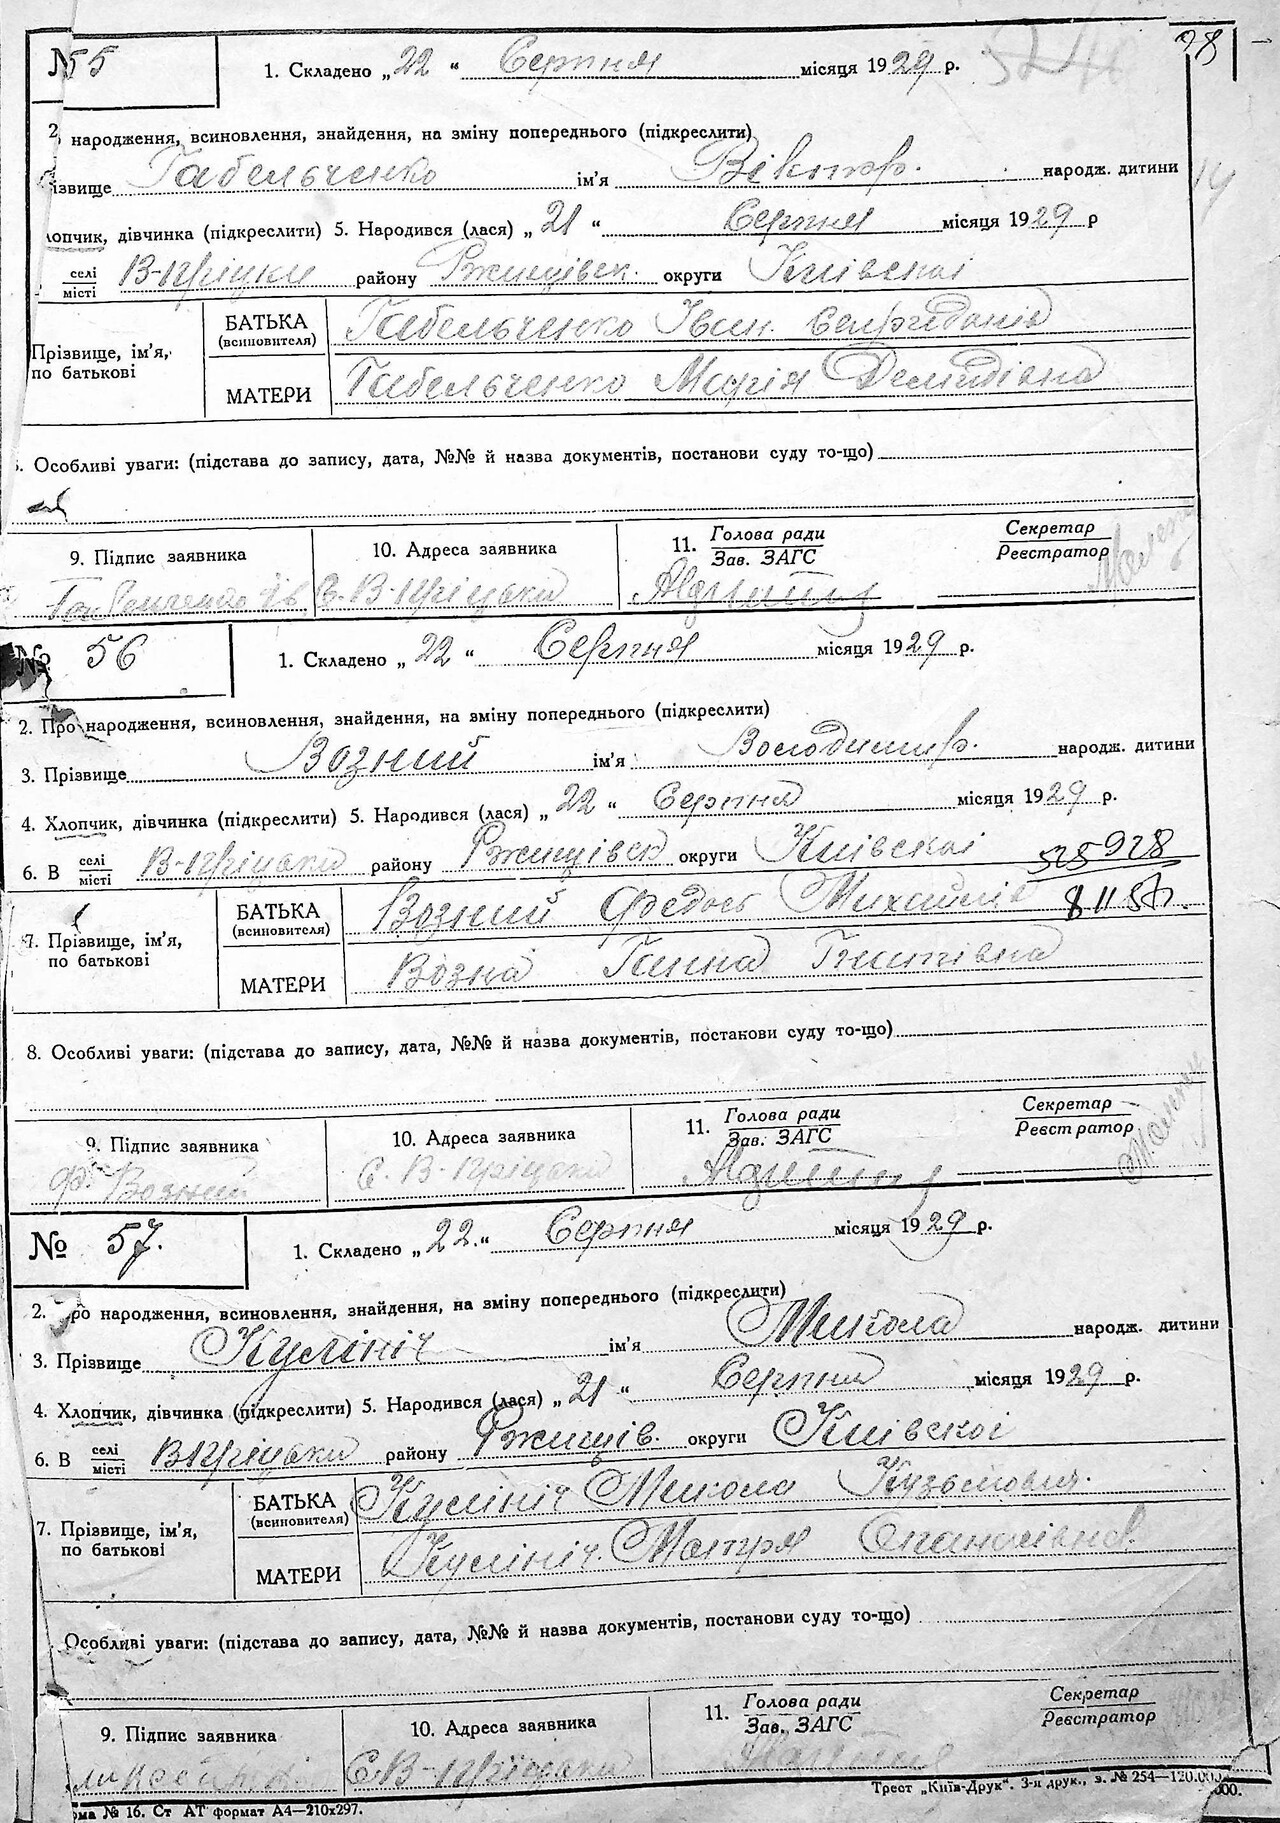 28
№ 55
1. Складено „ 22 “ Серпня місяця 1929 р.
народження, всиновлення, знайдення, на зміну попереднього (підкреслити)
ізвище Габельченко ім'я Віктор. народж. дитини
лопчик, дівчинка (підкреслити) 5. Народився (лася) „ 21 “ Серпня місяця 1929 р
селі
місті В-Пріцьки району Ржищівск. округи Київскої
Прізвище, ім'я, по батькові
БАТЬКА (всиновителя) Габельченко Іван
МАТЕРИ Габельченко Марія Демидівна
. Особливі уваги: (підстава до запису, дата, №№ й назва документів, постанови суду то-що)
9. Підпис заявника
10. Адреса заявника
11. Голова ради
Зав. ЗАГС
Секретар
Реєстратор
с. В-Пріцьки
№ 56
1. Складено „ 22 “ Серпня місяця 1929 р.
2. Про народження, всиновлення, знайдення, на зміну попереднього (підкреслити)
3. Прізвище Возний ім'я Володимир. народж. дитини
4. Хлопчик, дівчинка (підкреслити) 5. Народився (лася) „ 22 “ Серпня місяця 1929 р.
6. В селі
місті В-Пріцьки району Ржищівск округи Київскої
525928
7. Прізвище, ім'я, по батькові
БАТЬКА (всиновителя) Возний Федось Михайлів
МАТЕРИ Возна Ганна Гнатівна
8. Особливі уваги: (підстава до запису, дата, №№ й назва документів, постанови суду то-що)
9. Підпис заявника
10. Адреса заявника
11. Голова ради
Зав. ЗАГС
Секретар
Реєстратор
Возний
С. В-Пріцьки
№ 57.
1. Складено „ 22. “ Серпня місяця 1929 р.
2. ро народження, всиновлення, знайдення, на зміну попереднього (підкреслити)
3. Прізвище Кулініч ім'я Микола народж. дитини
4. Хлопчик, дівчинка (підкреслити) 5. Народився (лася) „ 21 “ Серпня місяця 1929 р.
6. В селі
місті ВПріцьки району Ржищів. округи Київскої
7. Прізвище, ім'я, по батькові
БАТЬКА (всиновителя) Кулініч Микола Кузьмович.
МАТЕРИ Кулініч. Мотря Опанасівна.
Особливі уваги: (підстава до запису, дата, №№ й назва документів, постанови суду то-що)
9. Підпис заявника
10. Адреса заявника
11. Голова ради
Зав. ЗАГС
Секретар
Реєстратор
С. В-Пріцьки
ма № 16. Ст АТ формат А4—210х297.
Трест „Київ-Друк“. 3-я друк., з. № 254—120.00